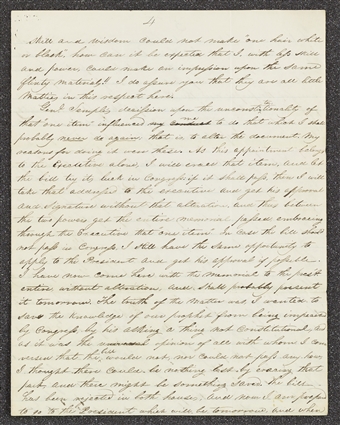 4
skill and wisdom could not make one hair white
or black. how can it be expected that I with less skill
and power could make an impression upon the same
flinty materials? I do assure you that they are all little
matters in this respect here.
Genl. Semples decission upon the unconstitutionality of
that one item influenced me to do that what I shal
probably never do again that is to alter the document. My
reasons for doing it were these. As this appointment belongs
to the executive alone, I will erace that item, and let
the bill try its luck in Congress. if it shall pass then I will
take that addressed to the executive and get his approval
and signature without that alteration and thus between
the two powers get the entire memorial passed embracing
through the Executive that one item. In case the bill shall
not pass in Congress I shall have the same opportunity to
apply to the President and get his approval if possible.
I have now come here with the memorial to the prest
entire without alteration, and shall probably present
it tomorrow. The truth of the matter was, I wanted to
save the knowledge of our prophet from being impeached
by Congress by his asking a thing not Constitutional, and
as it was the opinion of all with whom I con
versed that the bill would not, nor could not pass any how
I thought there could be nothing lost by eracing that
part and there might be something saved. the bill
has been rejected in both houses, and now I am prepared
to go to the President which will be tomorrow and when